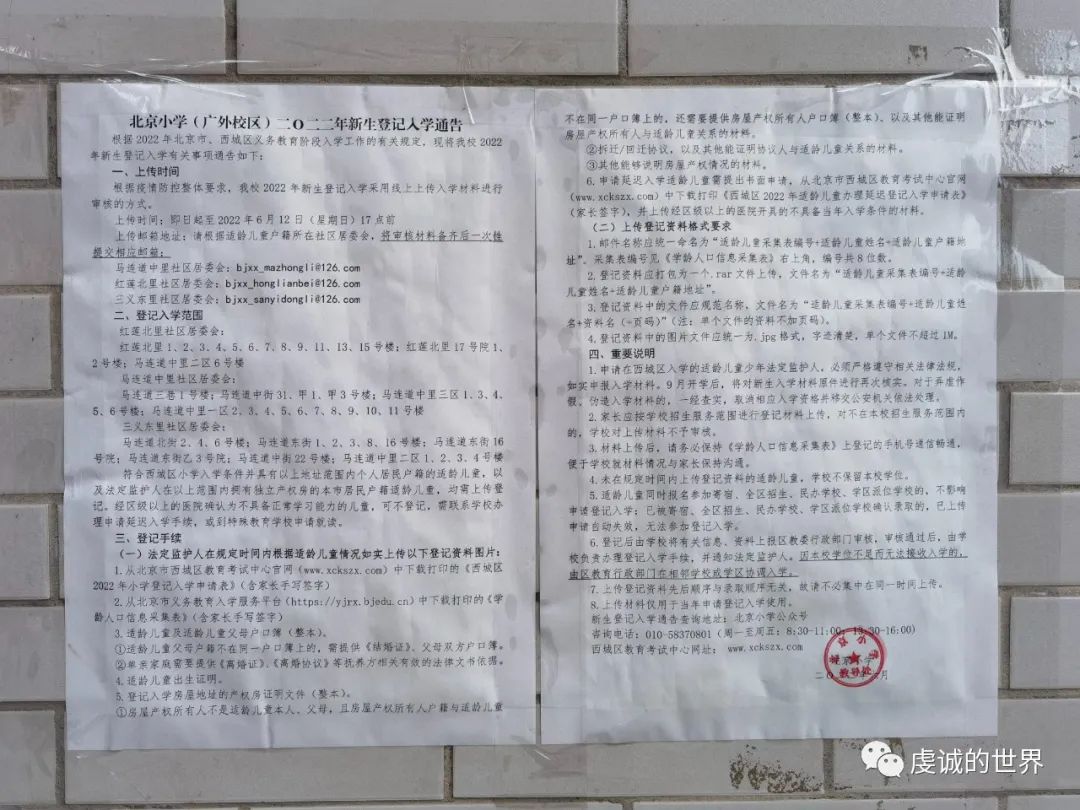 北京小学（广外校区）二〇二二年新生登记入学通告
根据2022年北京市、西城区义务教育阶段入学工作的有关规定，现将我校2022
年新生登记入学有关事项通告如下：
一、上传时间
根据疫情防控整体要求，我校2022年新生登记入学采用线上上传入学材料进行
审核的方式。
上传时间：即日起至2022年6月12日（星期日）17点前
上传邮箱地址：请根据适龄儿童户籍所在社区居委会，将审核材料备齐后一次性
提交相应邮箱：
马连道中里社区居委会：bjxx_mazhongli@126.com
红莲北里社区居委会：bjxx_honglianbei@126.com
三义东里社区居委会：bjxx_sanyidongli@126.com
二、登记入学范围
红莲北里社区居委会：
红莲北里1、2、3、4、5、6、7、8、9、11、13、15号楼；红莲北里17号院1、
2号楼；马连道中里二区6号楼
马连道中里社区居委会：
马连道三巷1号楼；马连道中街31、甲1、甲3号楼；马连道中里三区1、3、4、
5、6号楼；马连道中里一区2、3、4、5、6、7、8、9、10、11号楼
三义东里社区居委会：
马连道北街2、4、6号楼；马连道东街1、2、3、8、16号楼；马连道东街16
号院；马连道东街乙3号院；马连道中街22号楼；马连道中里二区1、2、3、4号楼
符合西城区小学入学条件并具有以上地址范围内个人居民户籍的适龄儿童，以
及法定监护人在以上范围内拥有独立产权房的本市居民户籍适龄儿童，均需上传登
记。经区级以上的医院确认为不具备正常学习能力的儿童，可不登记，需联系学校办
理申请延迟入学手续，或到特殊教育学校申请就读。
三、登记手续
（一）法定监护人在规定时间内根据适龄儿童情况如实上传以下登记资料图片：
1.从北京市西城区教育考试中心官网（www.xckszx.com）中下载打印的《西城区
2022年小学登记入学申请表》（含家长手写签字）
2.从北京市义务教育入学服务平台（https://yjrx.bjedu.cn）中下载打印的《学
龄人口信息采集表》（含家长手写签字）
3.适龄儿童及适龄儿童父母户口簿（整本）。
①适龄儿童父母户籍不在同一户口簿上的，需提供《结婚证》、父母双方户口簿。
②单亲家庭需要提供《离婚证》、《离婚协议》等抚养方相关有效的法律文书依据。
4.适龄儿童出生证明。
5.登记入学房屋地址的产权房证明文件（整本）。
①房屋产权所有人不是适龄儿童本人、父母，且房屋产权所有人户籍与适龄儿童
不在同一户口簿上的，还需要提供房屋产权所有人户口簿（整本）、以及其他能证明
房屋产权所有人与适龄儿童关系的材料。
②拆迁/回迁协议，以及其他能证明协议人与适龄儿童关系的材料。
③其他能够说明房屋产权情况的材料。
6.申请延迟入学适龄儿童需提出书面申请，从北京市西城区教育考试中心官网
（www.xckszx.com）中下载打印《西城区2022年适龄儿童办理延迟登记入学申请表》
（家长签字），并上传经区级以上的医院开具的不具备当年入学条件的材料。
（二）上传登记资料格式要求
1.邮件名称应统一命名为“适龄儿童采集表编号+适龄儿童姓名+适龄儿童户籍地
址”，采集表编号见《学龄人口信息采集表》右上角，编号共8位数。
2.登记资料应打包为一个.rar文件上传，文件名为“适龄儿童采集表编号+适龄
儿童姓名+适龄儿童户籍地址”。
3.登记资料中的文件应规范名称，文件名为“适龄儿童采集表编号+适龄儿童姓
名+资料名（+页码）”（注：单个文件的资料不加页码）。
4.登记资料中的图片文件应统一为.jpg格式，字迹清楚，单个文件不超过1M。
四、重要说明
1.申请在西城区入学的适龄儿童少年法定监护人，必须严格遵守相关法律法规，
如实申报入学材料。9月开学后，将对新生入学材料原件进行再次核实。对于弄虚作
假、伪造入学材料的，一经查实，取消相应入学资格并移交公安机关依法处理。
2.家长应按学校招生服务范围进行登记材料上传，对不在本校招生服务范围内
的，学校对上传材料不予审核。
3.材料上传后，请务必保持《学龄人口信息采集表》上登记的手机号通信畅通，
便于学校就材料情况与家长保持沟通。
4.未在规定时间内上传登记资料的适龄儿童，学校不保留本校学位。
5.适龄儿童同时报名参加寄宿、全区招生、民办学校、学区派位学校的，不影响
申请登记入学；已被寄宿、全区招生、民办学校、学区派位学校确认录取的，已上传
申请自动失效，无法参加登记入学。
6.登记后由学校将有关信息、资料上报区教委行政部门审核，审核通过后，由学
校负责办理登记入学手续，并通知法定监护人。因本校学位不足而无法接收入学的，
由区教育行政部门在相邻学校或学区协调入学。
7.上传登记资料先后顺序与录取顺序无关，故请不必集中在同一时间上传。
8.上传材料仅用于当年申请登记入学使用。
新生登记入学通告查询地址：北京小学公众号
咨询电话：010-58370801（周一至周五：8:30-11:00；13:30-16:00）
西城区教育考试中心网址：www.xckszx.com
虔诚的世界